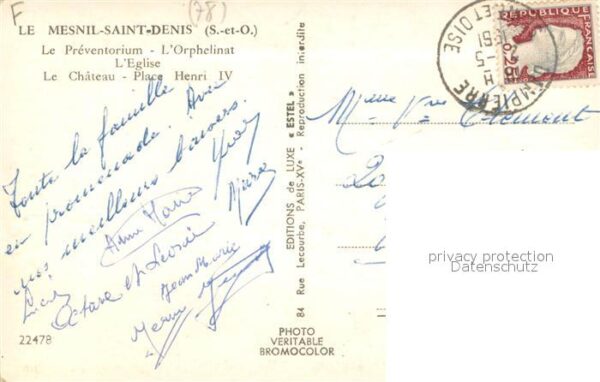 F
(78)
LE MESNIL-SAINT-DENIS (S.-et-O.)
Le Préventorium - L'Orphelinat
L'Eglise
Le Château - Place Henri IV
Toute la famille
en promenade. Avec
nos meilleurs baisers.
Anne Marie
Octave et Léonie
Jean Marie
22478
EDITIONS de LUXE « ESTEL »
84 Rue Lecourbe, PARIS-XVe - Reproduction interdite
PHOTO
VERITABLE
BROMOCOLOR
1961
REPUBLIQUE FRANÇAISE
0,25
Mme Vve Clément
privacy protection
Datenschutz